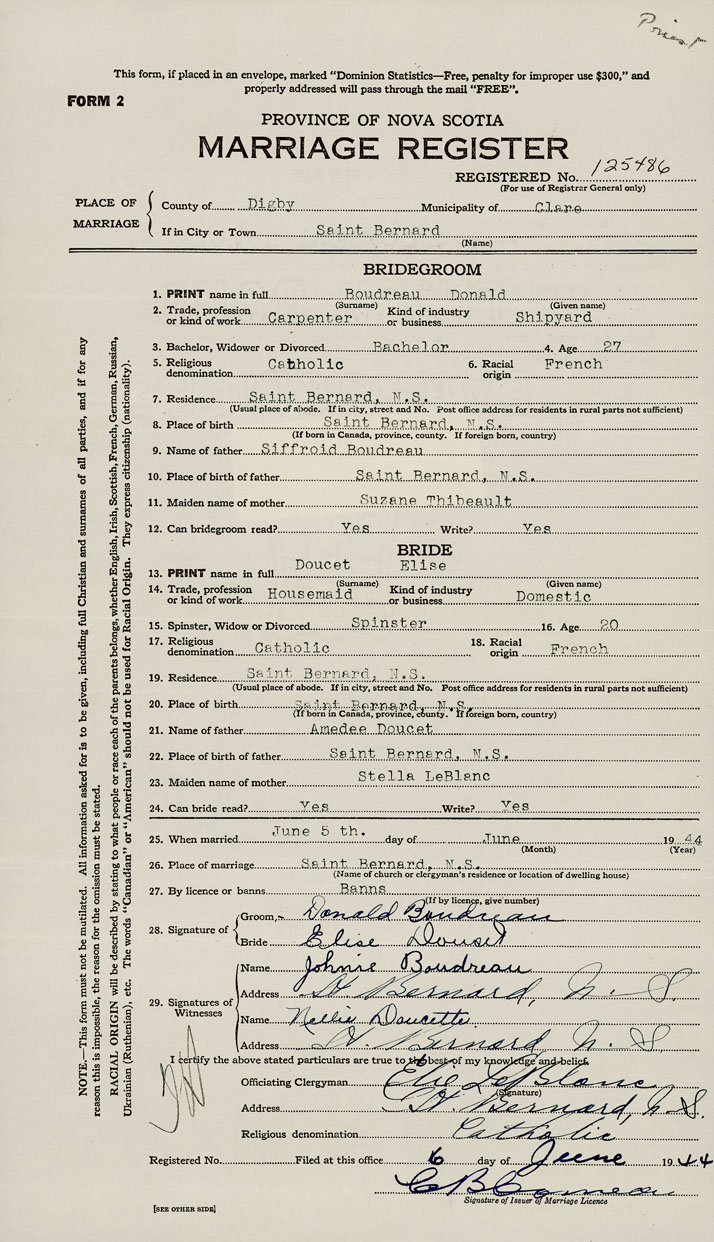 Priest
This form, if placed in an envelope, marked “Dominion Statistics—Free, penalty for improper use $300,” and
properly addressed will pass through the mail “FREE”.
FORM 2
PROVINCE OF NOVA SCOTIA
MARRIAGE REGISTER
REGISTERED No. 125486
(For use of Registrar General only)
PLACE OF MARRIAGE
County of Digby Municipality of Clare
If in City or Town Saint Bernard
(Name)
BRIDEGROOM
1. PRINT name in full Boudreau Donald
(Surname) (Given name)
2. Trade, profession or kind of work Carpenter Kind of industry or business Shipyard
3. Bachelor, Widower or Divorced Bachelor 4. Age 27
5. Religious denomination Catholic 6. Racial origin French
7. Residence Saint Bernard, N.S.
(Usual place of abode. If in city, street and No. Post office address for residents in rural parts not sufficient)
8. Place of birth Saint Bernard, N.S.
(If born in Canada, province, county. If foreign born, country)
9. Name of father Siffroid Boudreau
10. Place of birth of father Saint Bernard, N.S.
11. Maiden name of mother Suzane Thibeault
12. Can bridegroom read? Yes Write? Yes
BRIDE
13. PRINT name in full Doucet Elise
(Surname) (Given name)
14. Trade, profession or kind of work Housemaid Kind of industry or business Domestic
15. Spinster, Widow or Divorced Spinster 16. Age 20
17. Religious denomination Catholic 18. Racial origin French
19. Residence Saint Bernard, N.S.
(Usual place of abode. If in city, street and No. Post office address for residents in rural parts not sufficient)
20. Place of birth Saint Bernard, N.S.
(If born in Canada, province, county. If foreign born, country)
21. Name of father Amedee Doucet
22. Place of birth of father Saint Bernard, N.S.
23. Maiden name of mother Stella LeBlanc
24. Can bride read? Yes Write? Yes
25. When married June 5 th. day of June 1944
(Month) (Year)
26. Place of marriage Saint Bernard, N.S.
(Name of church or clergyman's residence or location of dwelling house)
27. By licence or banns Banns
(If by licence, give number)
28. Signature of
Groom, Donald Boudreau
Bride Elise Douset
29. Signatures of Witnesses
Name Johnie Boudreau
Address St Bernard, N. S.
Name Nellie Doucette
Address St Bernard N. S
I certify the above stated particulars are true to the best of my knowledge and belief.
Officiating Clergyman Elie LeBlanc
(Signature)
Address St Bernard, N.S.
Religious denomination Catholic
Registered No. Filed at this office 6 day of June 1944
C B Comeau
Signature of Issuer of Marriage Licence
[SEE OTHER SIDE]
NOTE.—This form must not be mutilated. All information asked for is to be given, including full Christian and surnames of all parties, and if for any
reason this is impossible, the reason for the omission must be stated.
RACIAL ORIGIN will be described by stating to what people or race each of the parents belongs, whether English, Irish, Scottish, French, German, Russian,
Ukrainian (Ruthenian), etc. The words “Canadian” or “American” should not be used for Racial Origin. They express citizenship (nationality).